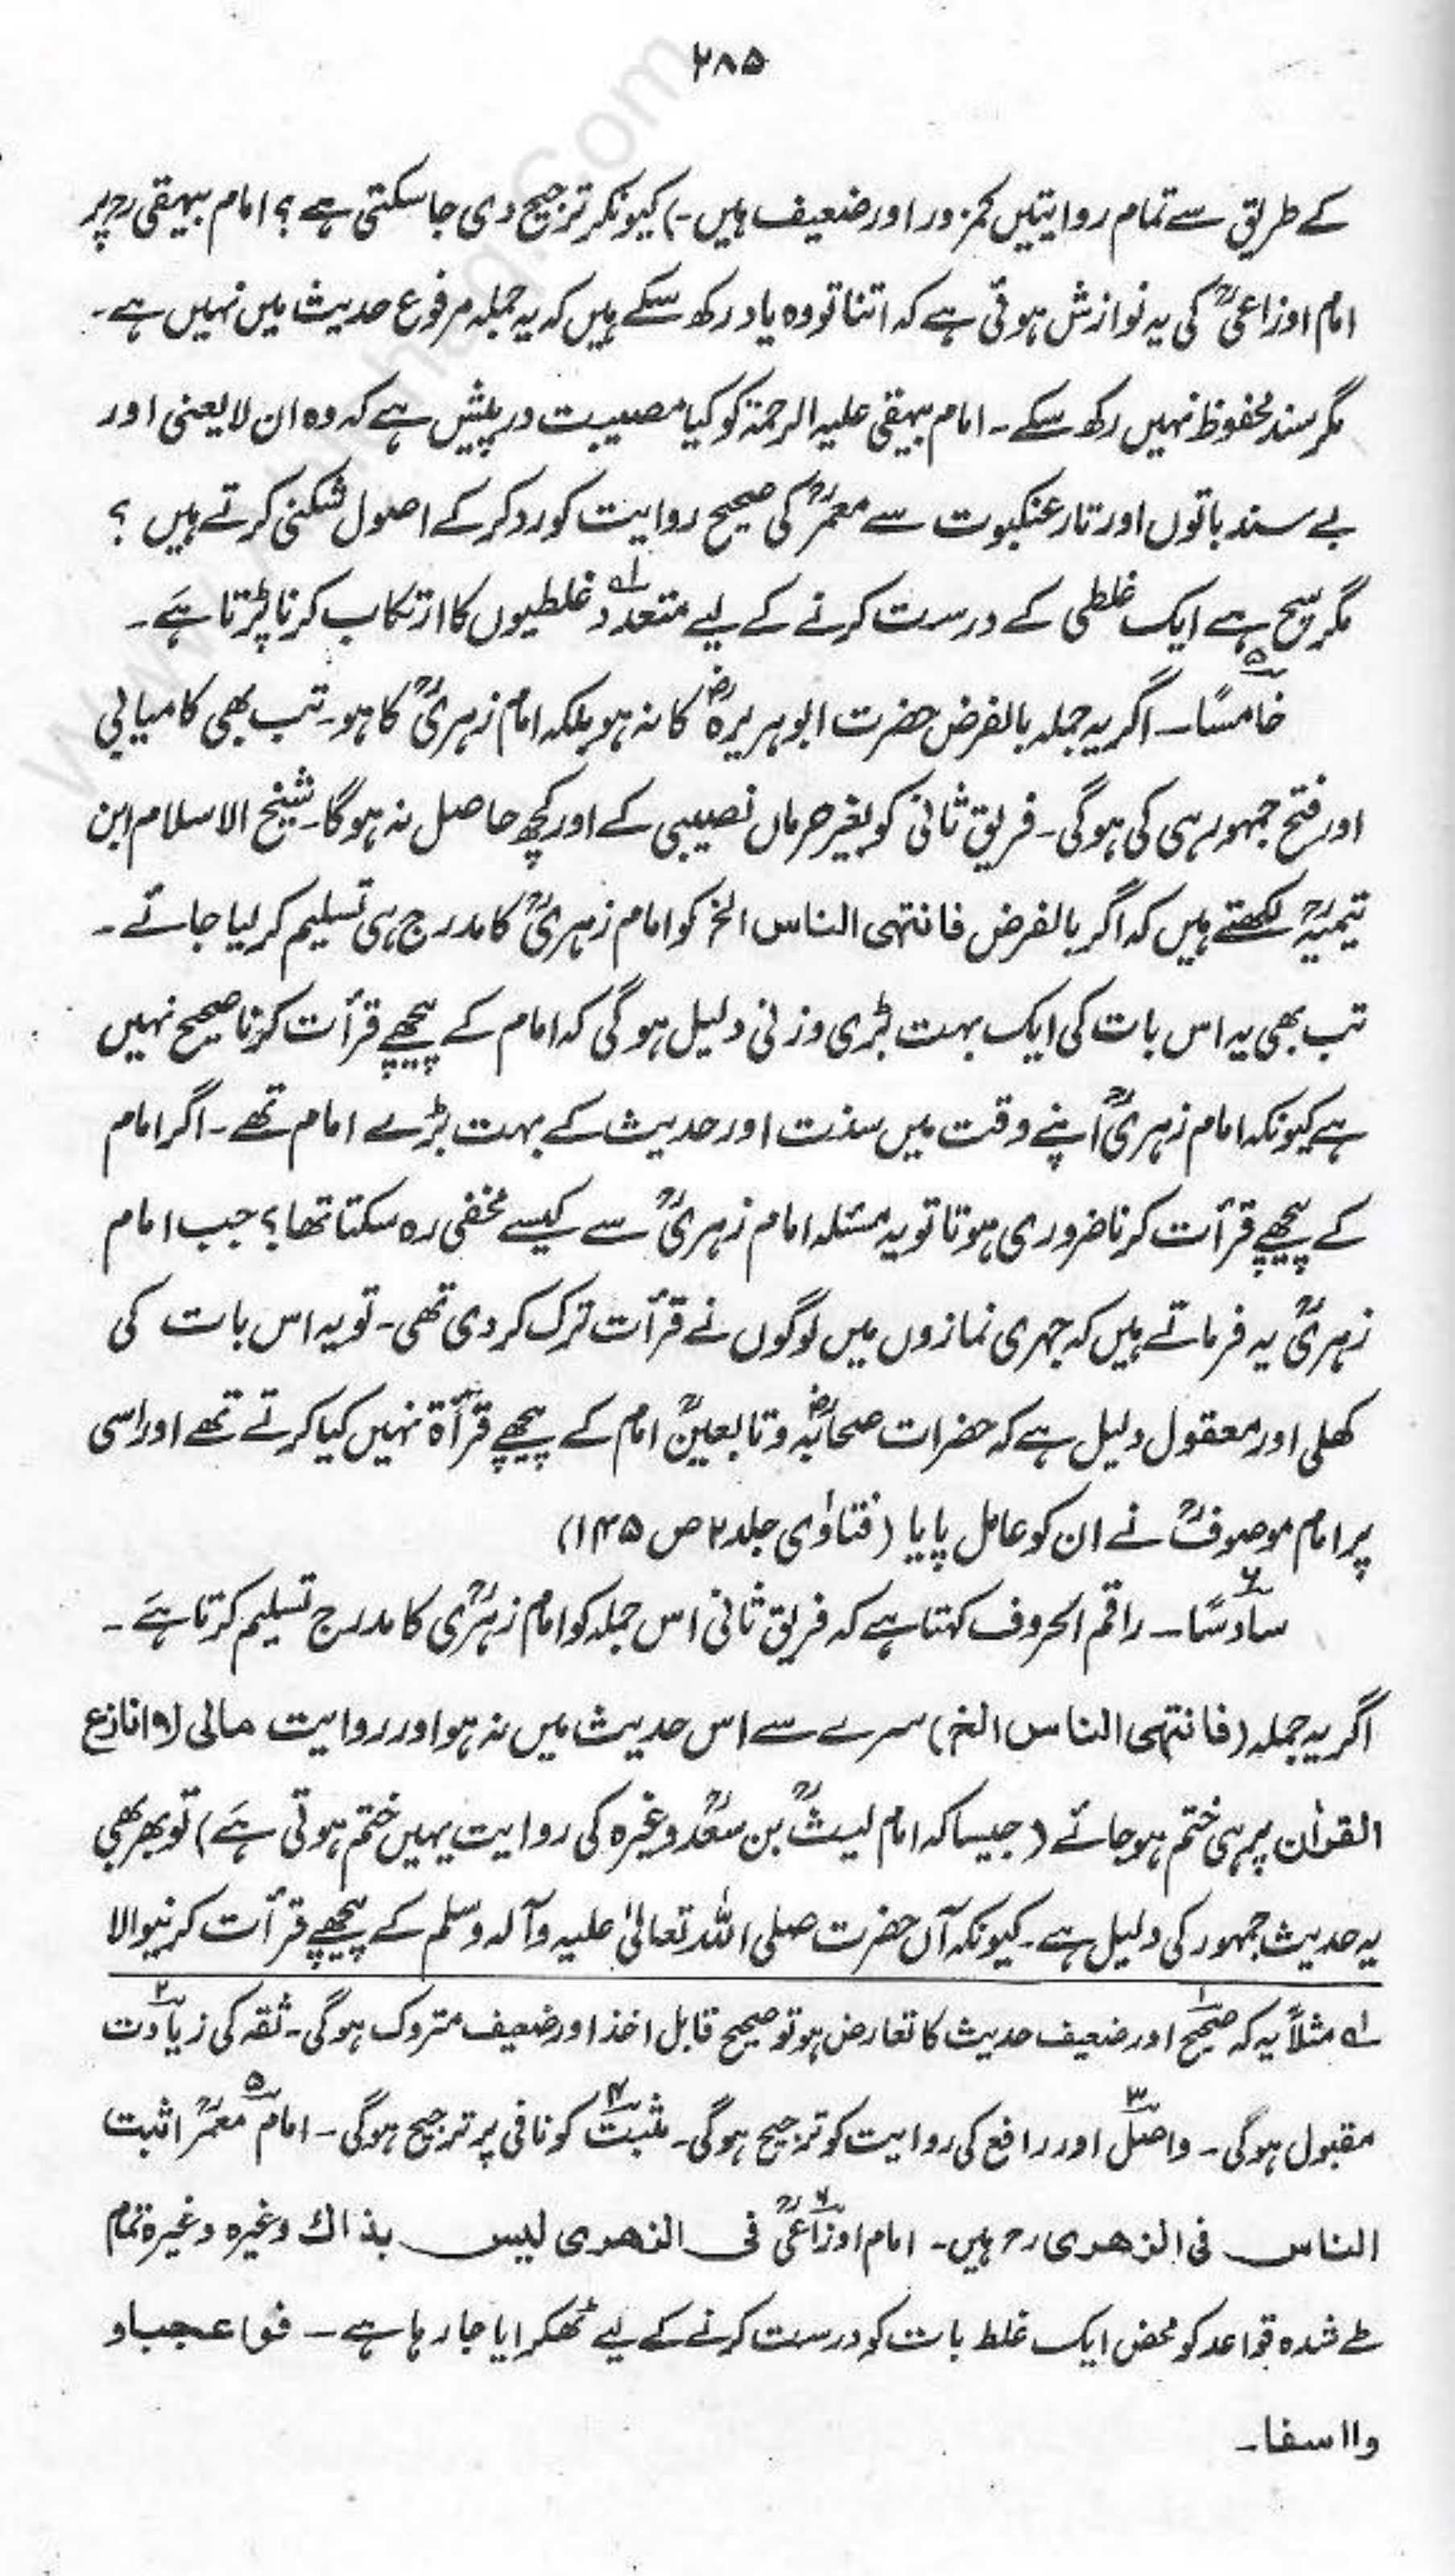 ۲۸۵
کے طریق سے تمام روایتیں کمزور اور ضعیف ہیں۔) کیونکر ترجیح دی جا سکتی ہے؟ امام بیہقی رح پر
امام اوزاعیؒ کی یہ نوازش ہوئی ہے کہ اتنا تو وہ یاد رکھ سکے ہیں کہ یہ جملہ مرفوع حدیث میں نہیں ہے۔
مگر سند محفوظ نہیں رکھ سکے۔ امام بیہقی علیہ الرحمۃ کو کیا مصیبت درپیش ہے کہ وہ ان لایعنی اور
بے سند باتوں اور تار عنکبوت سے معمرؒ کی صحیح روایت کو رد کر کے اصول شکنی کرتے ہیں ؟
مگر سچ ہے ایک غلطی کے درست کرنے کے لیے متعدد لہ غلطیوں کا ارتکاب کرنا پڑتا ہے۔
خامسًا۵۔ اگر یہ جملہ بالفرض حضرت ابوہریرہؓ کا نہ ہو بلکہ امام زہریؒ کا ہو۔ تب بھی کامیابی
اور فتح جمہور ہی کی ہوگی۔ فریق ثانی کو بغیر حرماں نصیبی کے اور کچھ حاصل نہ ہوگا۔ شیخ الاسلام ابن
تیمیہؒ لکھتے ہیں کہ اگر بالفرض فانتہی الناس الخ کو امام زہریؒ کا مدرج ہی تسلیم کر لیا جائے۔
تب بھی یہ اس بات کی ایک بہت بڑی وزنی دلیل ہوگی کہ امام کے پیچھے قرأت کرنا صحیح نہیں
ہے کیونکہ امام زہریؒ اپنے وقت میں سنت اور حدیث کے بہت بڑے امام تھے۔ اگر امام
کے پیچھے قرأت کرنا ضروری ہوتا تو یہ مسئلہ امام زہریؒ سے کیسے مخفی رہ سکتا تھا؟ جب امام
زہریؒ یہ فرماتے ہیں کہ جہری نمازوں میں لوگوں نے قرأت ترک کر دی تھی۔ تو یہ اس بات کی
کھلی اور معقول دلیل ہے کہ حضرات صحابہؓ و تابعینؒ امام کے پیچھے قرأۃ نہیں کیا کرتے تھے اور اسی
پر امام موصوفؒ نے ان کو عامل پایا (فتاوٰی جلد ۲ ص ۱۴۵)
سادسًا۶۔ راقم الحروف کہتا ہے کہ فریق ثانی اس جملہ کو امام زہریؒ کا مدرج تسلیم کرتا ہے۔
اگر یہ جملہ (فانتہی الناس الخ) سرے سے اس حدیث میں نہ ہو اور روایت مالی (۹) انازع
القراٰن پر ہی ختم ہو جائے (جیسا کہ امام لیثؒ بن سعدؒ وغیرہ کی روایت یہیں ختم ہوتی ہے) تو پھر بھی
یہ حدیث جمہور کی دلیل ہے۔ کیونکہ آں حضرت صلی اللہ تعالیٰ علیہ وآلہ وسلم کے پیچھے قرأت کرنیوالا
لہ مثلاً یہ کہ صحیح۱ اور ضعیف حدیث کا تعارض ہو تو صحیح قابل اخذ اور ضعیف متروک ہوگی۔ ثقہ کی زیادت۲
مقبول ہوگی۔ واصل۳ اور رافع کی روایت کو ترجیح ہوگی۔ مثبت۴ کو نافی پر ترجیح ہوگی۔ امام۵ معمرؒ اثبت
الناس فی الزھری رح ہیں۔ امام اوزاعیؒ۶ فی الزھری لیس بذاك وغیرہ وغیرہ تمام
طے شدہ قواعد کو محض ایک غلط بات کو درست کرنے کے لیے ٹھکرایا جا رہا ہے۔ فوا عجبا و
وا اسفا۔